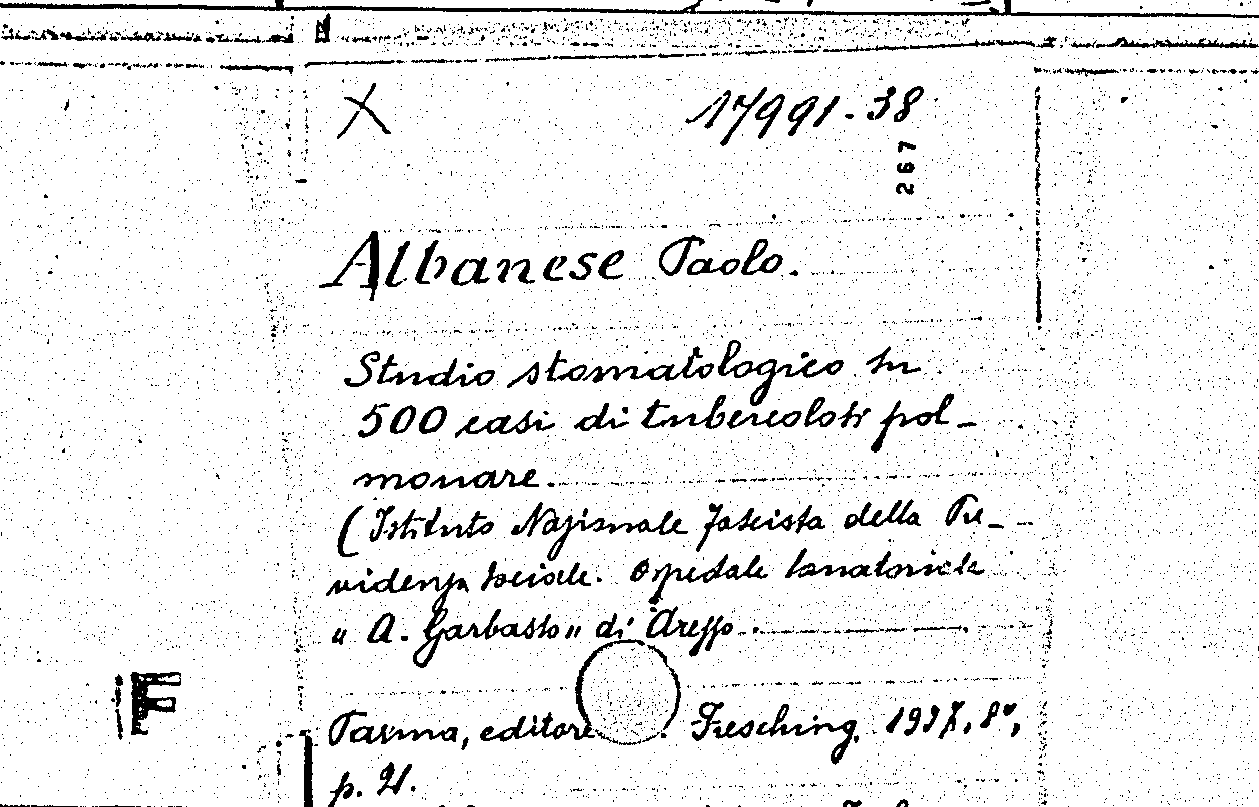 X 17991-38
267
Albanese Paolo.
Studio stomatologico su
500 casi di tubercolosi pol-
monare.
(Istituto Nazionale fascista della Pre-
videnza sociale. Ospedale sanatoriale
"A. Garbasso" di Arezzo.
Parma, editore Fresching, 1937, 8°,
p. 21.
F